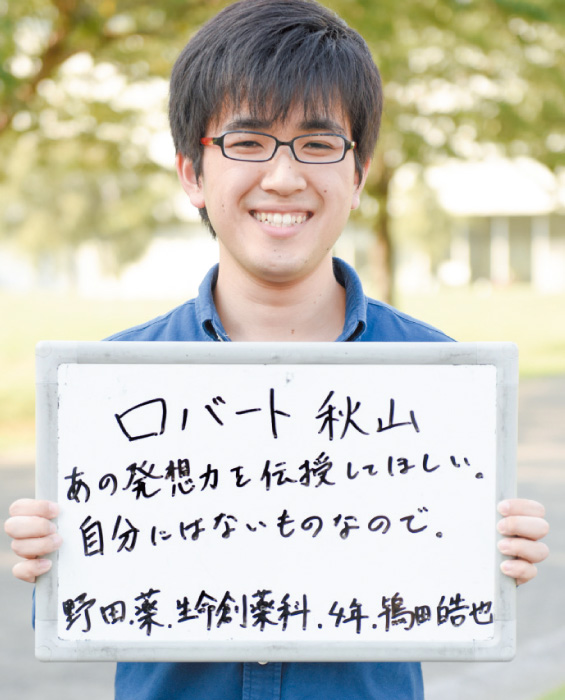 ロバート 秋山
あの発想力を伝授してほしい。
自分にはないものなので。
野田.薬.生命創薬科.4年.鴇田皓也